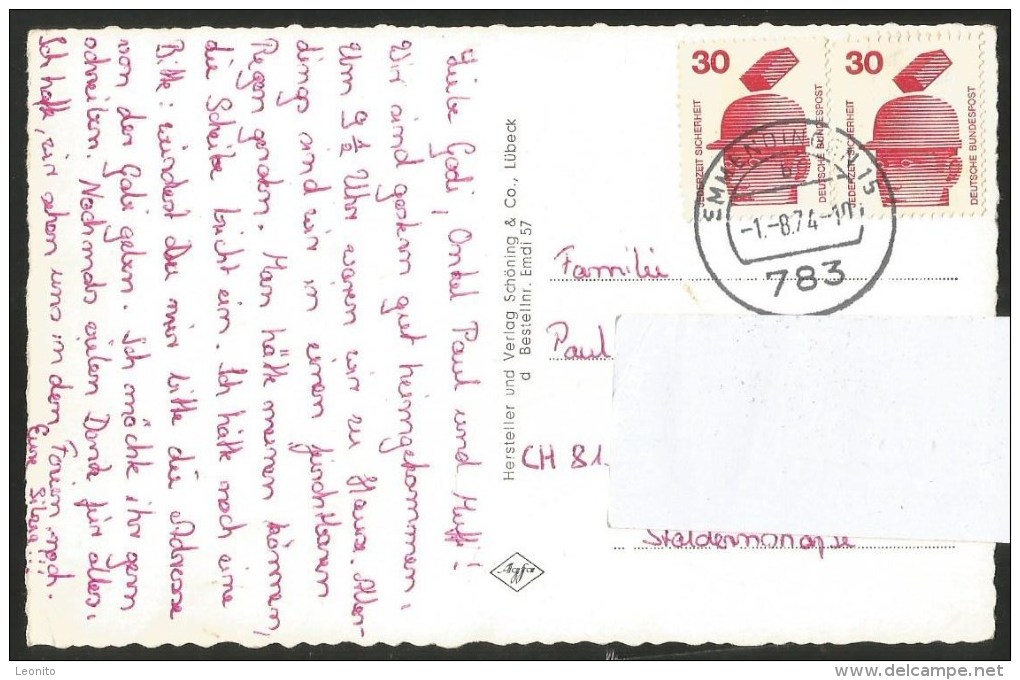 Liebe Godi, Onkel Paul und Muffi!
Wir sind gestern gut heimgekommen,
Um 9 1/2 Uhr waren wir zu Hause. Aller-
dings sind wir in einen furchtbaren
Regen geraten. Man hätte meinen können,
die Scheibe bricht ein. Ich hätte noch eine
Bitte: würdest Du mir bitte die Adresse
von der Godi geben. Ich möchte ihr gern
schreiben. Nochmals vielen Dank für alles.
Ich hoffe, wir sehen uns in den Ferien noch.
Eure Silvia!!!
Hersteller und Verlag Schöning & Co., Lübeck
d Bestellnr. Emdi 57
Agfa
30
JEDERZEIT SICHERHEIT
DEUTSCHE BUNDESPOST
30
JEDERZEIT SICHERHEIT
DEUTSCHE BUNDESPOST
-1.-8.74-
783
Familie
Paul
CH 81
Leonito
www.delcampe.net